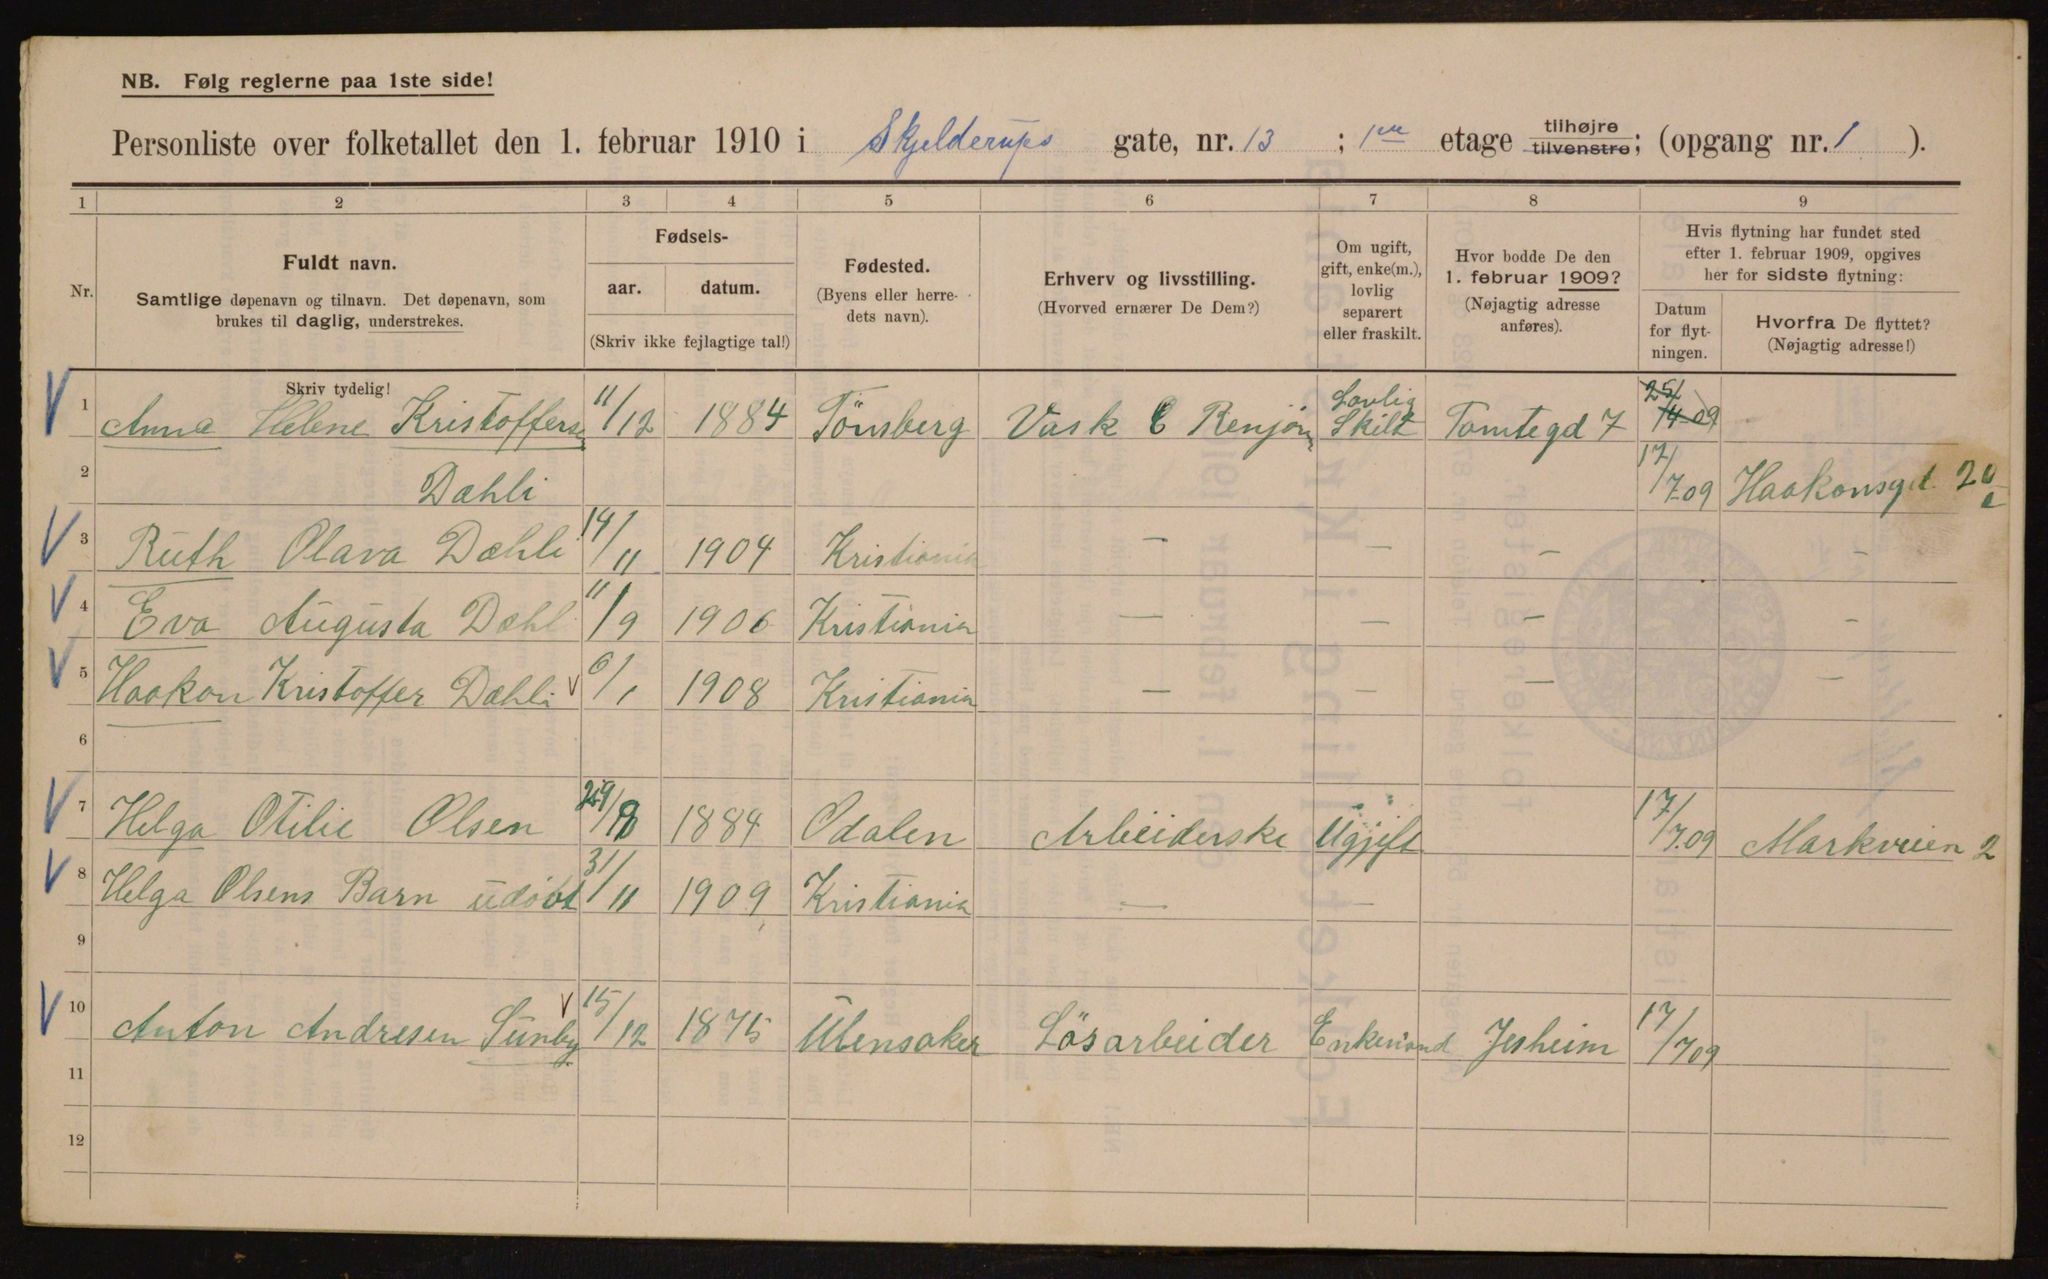 NB. Følg reglerne paa 1ste side!
Personliste over folketallet den 1. februar 1910 i Skjelderups gate, nr. 13 ; 1ste etage tilhøjre tilvenstre; (opgang nr. 1 ).
1 2 3 4 5 6 7 8 9
Nr.
Fuldt navn.
Samtlige døpenavn og tilnavn. Det døpenavn, som
brukes til daglig, understrekes.
Fødsels-
aar. datum.
(Skriv ikke fejlagtige tal!)
Fødested.
(Byens eller herre-
dets navn).
Erhverv og livsstilling.
(Hvorved ernærer De Dem?)
Om ugift,
gift, enke(m.),
lovlig
separert
eller fraskilt.
Hvor bodde De den
1. februar 1909?
(Nøjagtig adresse
anføres).
Hvis flytning har fundet sted
efter 1. februar 1909, opgives
her for sidste flytning:
Datum
for flyt-
ningen.
Hvorfra De flyttet?
(Nøjagtig adresse!)
Skriv tydelig!
1 Anna Helene Kristoffersen 11/12 1884 Tönsberg Vask & Renjön Lovlig Skilt Tomtegd 7 25/4-09
2 Dæhli 17/7.09 Haakonsgd. 20
3 Ruth Olava Dæhli 14/11 1904 Kristiania — — — —
4 Eva Augusta Dæhl 11/9 1906 Kristiania — — — —
5 Haakon Kristoffer Dæhli 6/1 1908 Kristiania — — — —
6
7 Helga Otilie Olsen 1884 Odalen Arbeiderske Ugjift 17/7.09 Markveien 2
8 Helga Olsens Barn udöbt 31/11 1909 Kristiania — —
9
10 Anton Andresen Sunby 15/12 1875 Ulensaker Lösarbeider Enkemand Jesheim 17/709
11
12